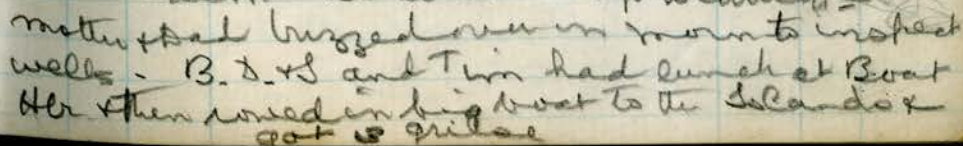 Mother & Dad buzzed over in morn to inspect
wells - B. D. & S and Tim had lunch at Boat
Hse & then rowed in big boat to the Islands &
got grilse